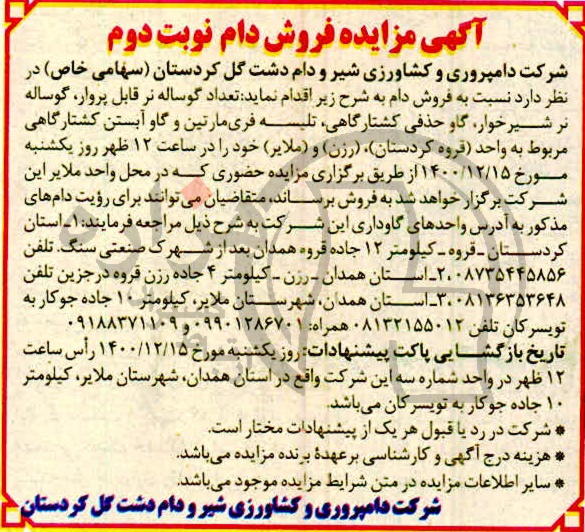 آگهی مزایده فروش دام نوبت دوم
شرکت دامپروری و کشاورزی شیر و دام دشت گل کردستان (سهامی خاص) در
نظر دارد نسبت به فروش دام به شرح زیر اقدام نماید: تعداد گوساله نر قابل پروار، گوساله
نر شیرخوار، گاو حذفی کشتارگاهی، تلیسه فری‌مارتین و گاو آبستن کشتارگاهی
مربوط به واحد (قروه کردستان)، (رزن) و (ملایر) خود را در ساعت ۱۲ ظهر روز یکشنبه
مورخ ۱۴۰۰/۱۲/۱۵ از طریق برگزاری مزایده حضوری که در محل واحد ملایر این
شرکت برگزار خواهد شد به فروش برساند، متقاضیان می‌توانند برای رؤیت دام‌های
مذکور به آدرس واحدهای گاوداری این شرکت به شرح ذیل مراجعه فرمایند: ۱ـ استان
کردستان ـ قروه ـ کیلومتر ۱۲ جاده قروه همدان بعد از شهرک صنعتی سنگ. تلفن
۰۸۷۳۵۴۴۵۸۵۶ .۲ـ استان همدان ـ رزن ـ کیلومتر ۴ جاده رزن قروه درجزین تلفن
۰۸۱۳۶۳۵۳۶۴۸ .۳ـ استان همدان، شهرستان ملایر، کیلومتر ۱۰ جاده جوکار به
تویسرکان تلفن ۰۸۱۳۲۱۵۵۰۱۲ همراه: ۰۹۹۰۱۲۸۶۷۰۱ و ۰۹۱۸۸۳۷۱۱۰۹
تاریخ بازگشایی پاکت پیشنهادات: روز یکشنبه مورخ ۱۴۰۰/۱۲/۱۵ رأس ساعت
۱۲ ظهر در واحد شماره سه این شرکت واقع در استان همدان، شهرستان ملایر، کیلومتر
۱۰ جاده جوکار به تویسرکان می‌باشد.
* شرکت در رد یا قبول هر یک از پیشنهادات مختار است.
* هزینه درج آگهی و کارشناسی برعهدهٔ برنده مزایده می‌باشد.
* سایر اطلاعات مزایده در متن شرایط مزایده موجود می‌باشد.
شرکت دامپروری و کشاورزی شیر و دام دشت گل کردستان